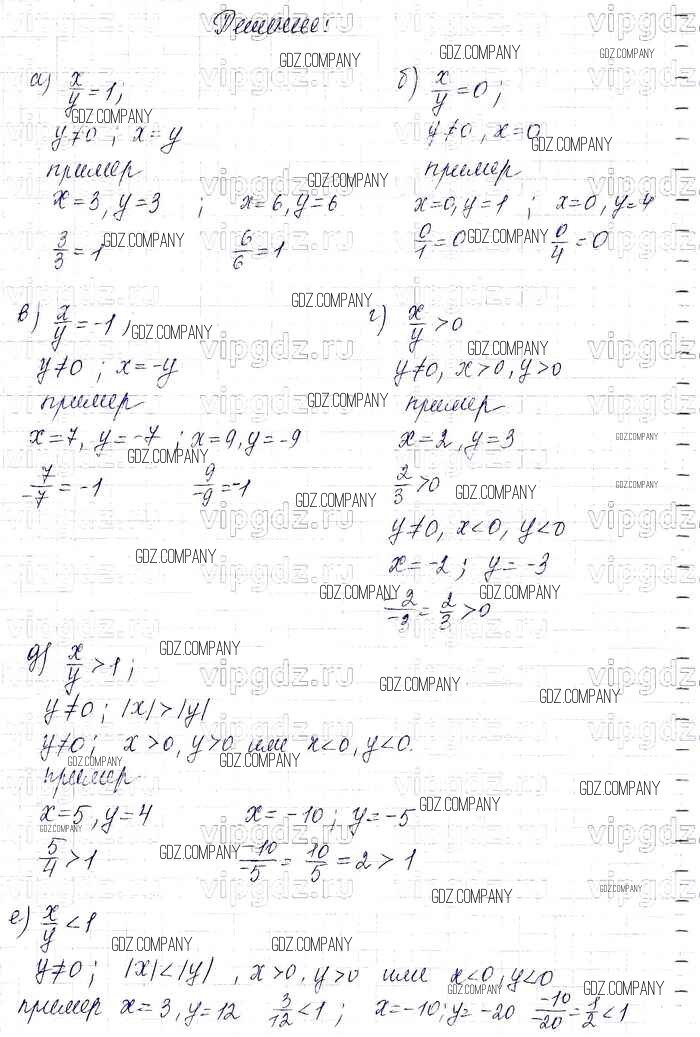 Решение:
а) x/y = 1;
y≠0 ; x=y
пример
x=3, y=3 ; x=6, y=6
3/3 = 1 6/6 = 1
б) x/y = 0;
y≠0, x=0
пример
x=0, y=1 ; x=0, y=4
0/1 = 0 0/4 = 0
в) x/y = -1,
y≠0 ; x=-y
пример
x=7, y=-7 ; x=9, y=-9
7/-7 = -1 9/-9 = -1
г) x/y > 0
y≠0, x>0, y>0
пример
x=2, y=3
2/3 > 0
y≠0, x<0, y<0
x=-2; y=-3
-2/-3 = 2/3 > 0
д) x/y > 1;
y≠0; |x|>|y|
y≠0; x>0, y>0 или x<0, y<0.
пример
x=5, y=4 x=-10; y=-5
5/4 > 1 -10/-5 = 10/5 = 2 > 1
е) x/y < 1
y≠0; |x|<|y|, x>0, y>0 или x<0, y<0
пример x=3, y=12 3/12 < 1 ; x=-10; y=-20 -10/-20 = 1/2 < 1
GDZ.COMPANY
vipgdz.ru